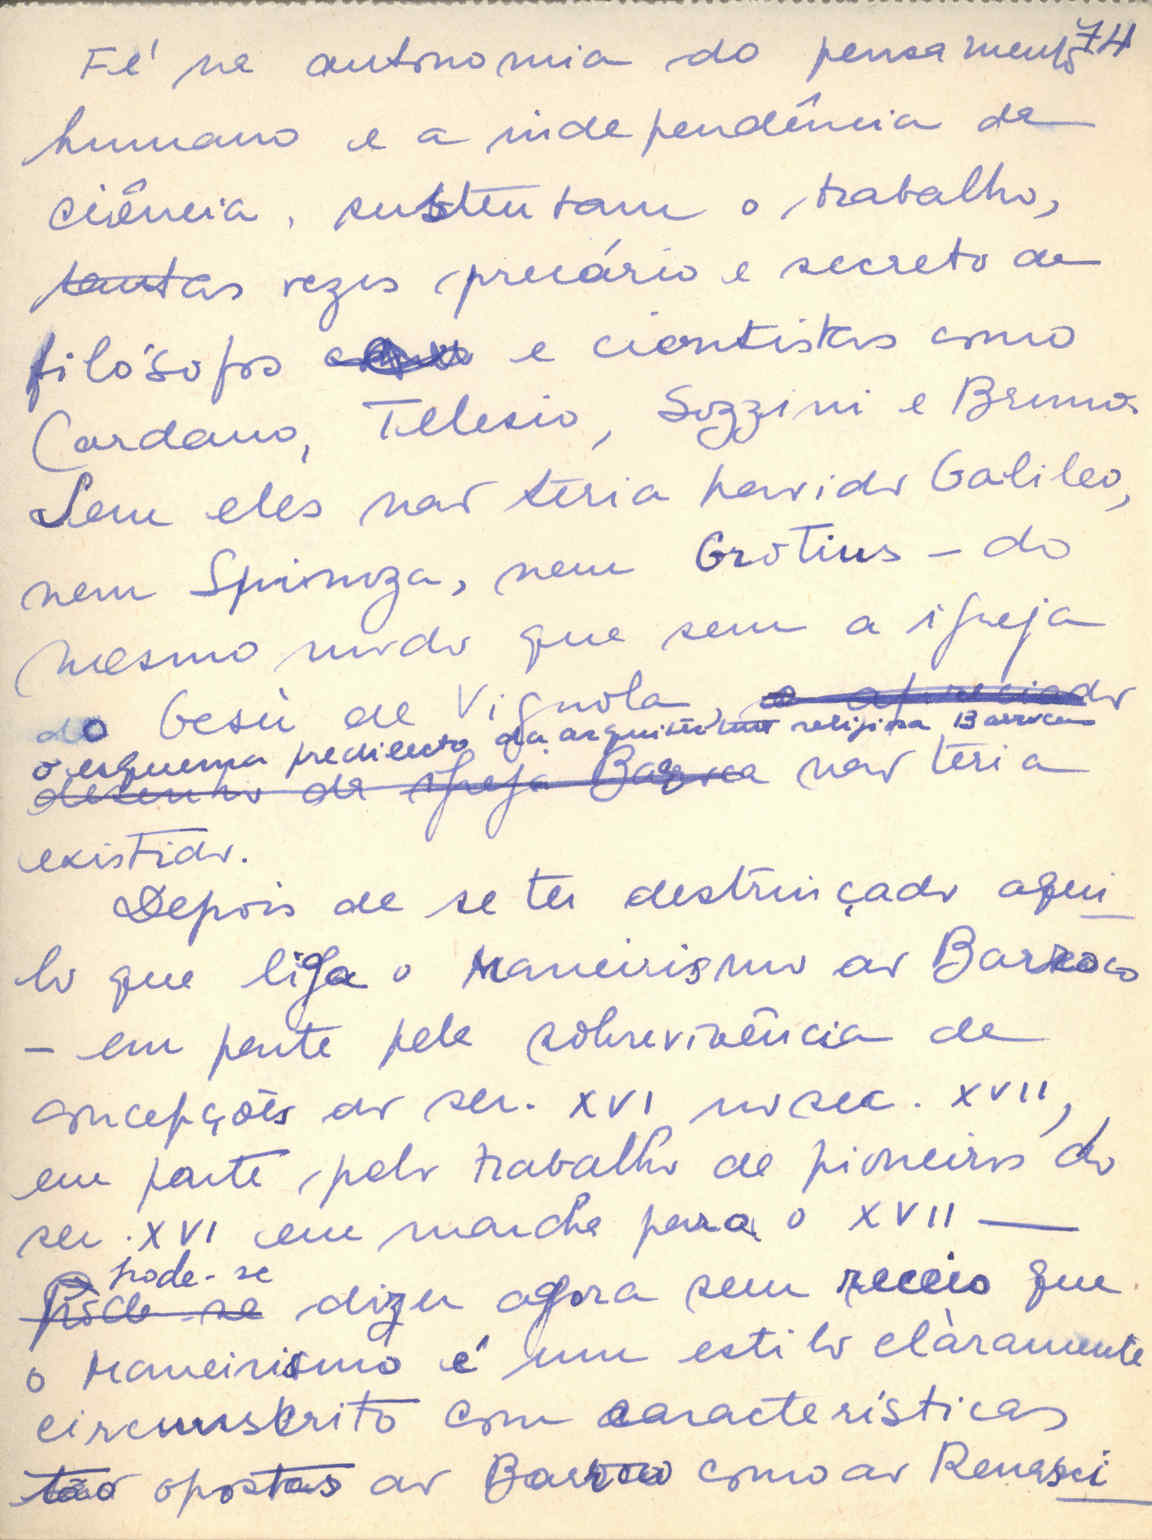 74
Fé na autonomia do pensamento
humano e a independência da
ciência, sustentam o trabalho,
tantas vezes precário e secreto de
filósofos e cientistas como
Cardano, Telesio, Sozzini e Bruno.
Sem eles não teria havido Galileo,
nem Spinoza, nem Grotius – do
mesmo modo que sem a igreja
do Gesù de Vignola, o apreciado
o esquema predilecto da arquitectura religiosa Barroca
desenho da igreja Barroca não teria
existido.
Depois de se ter destrinçado aqui
lo que liga o Maneirismo ao Barroco
– em parte pela sobrevivência de
concepções do sec. XVI no sec. XVII,
em parte, pelo trabalho de pioneiros do
sec. XVI em marcha para o XVII —
pode-se
Pode se dizer agora sem receio que
o Maneirismo é um estilo clàramente
circunscrito com características
tão opostas ao Barroco como ao Renasci